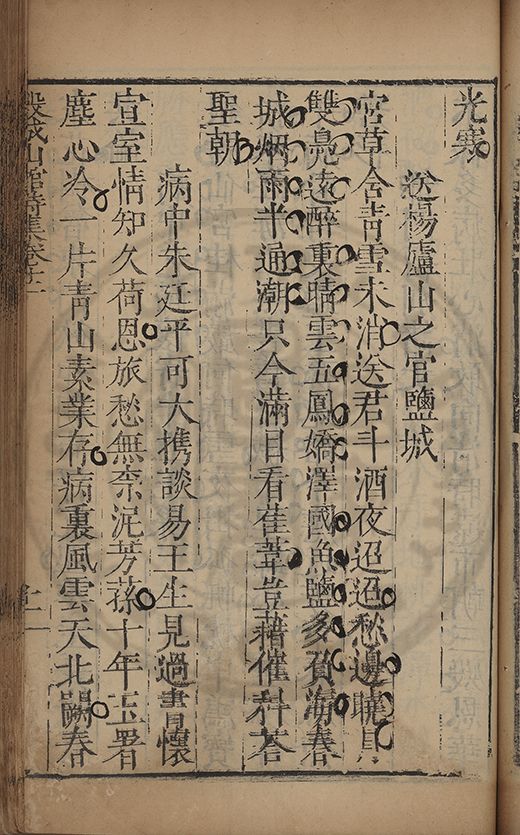 光寒
送楊廬山之官鹽城
宮草含青雪未消送君斗酒夜迢迢愁邊曉月
雙鳧遠醉裏晴雲五鳳嬌澤國魚鹽多負海春
城烟雨半通潮只今滿目看萑葦豈藉催科荅
聖朝
病中朱廷平可大携談易王生見過書懷
宣室情知久荷恩旅愁無柰況芳蓀十年玉署
塵心冷一片青山素業存病裏風雲天北闕春
穀城山館詩集卷